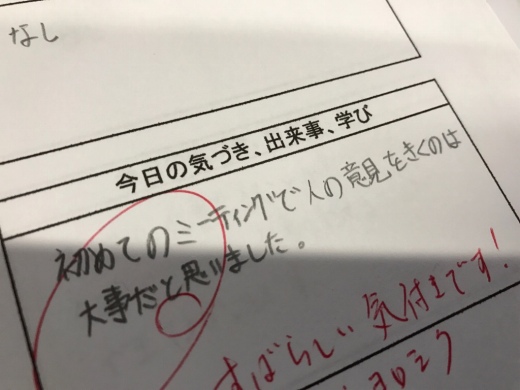 なし
今日の気づき、出来事、学び
初めてのミーティングで人の意見をきくのは
大事だと思いました。
すばらしい気付きです!